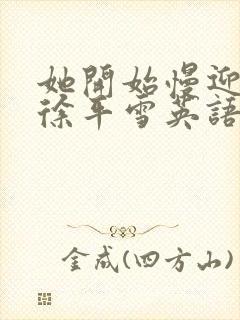 她開始慢迎
徐平雪英語
金成(四方山)